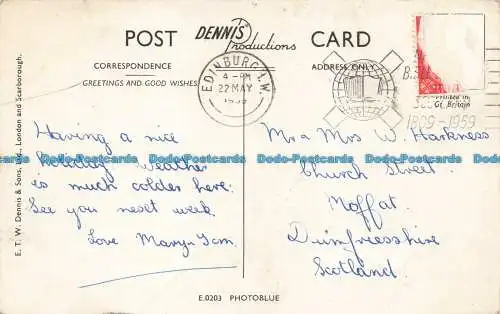 POST DENNIS Productions CARD
CORRESPONDENCE
ADDRESS ONLY
GREETINGS AND GOOD WISHES
EDINBURGH.1.W.
4 - PM
22 MAY
1959
Printed in
Gt. Britain
1809 - 1959
Having a nice
holiday. Weather
is much colder here.
See you next week.
Love Mary & Tom
Mr & Mrs W. Harkness
Church Street
Moffat.
Dumfriesshire
Scotland.
E. T. W. Dennis & Sons, Ltd., London and Scarborough.
E.0203 PHOTOBLUE
Dodo-Postcards Dodo-Postcards Dodo-Postcards Dodo-Postcards